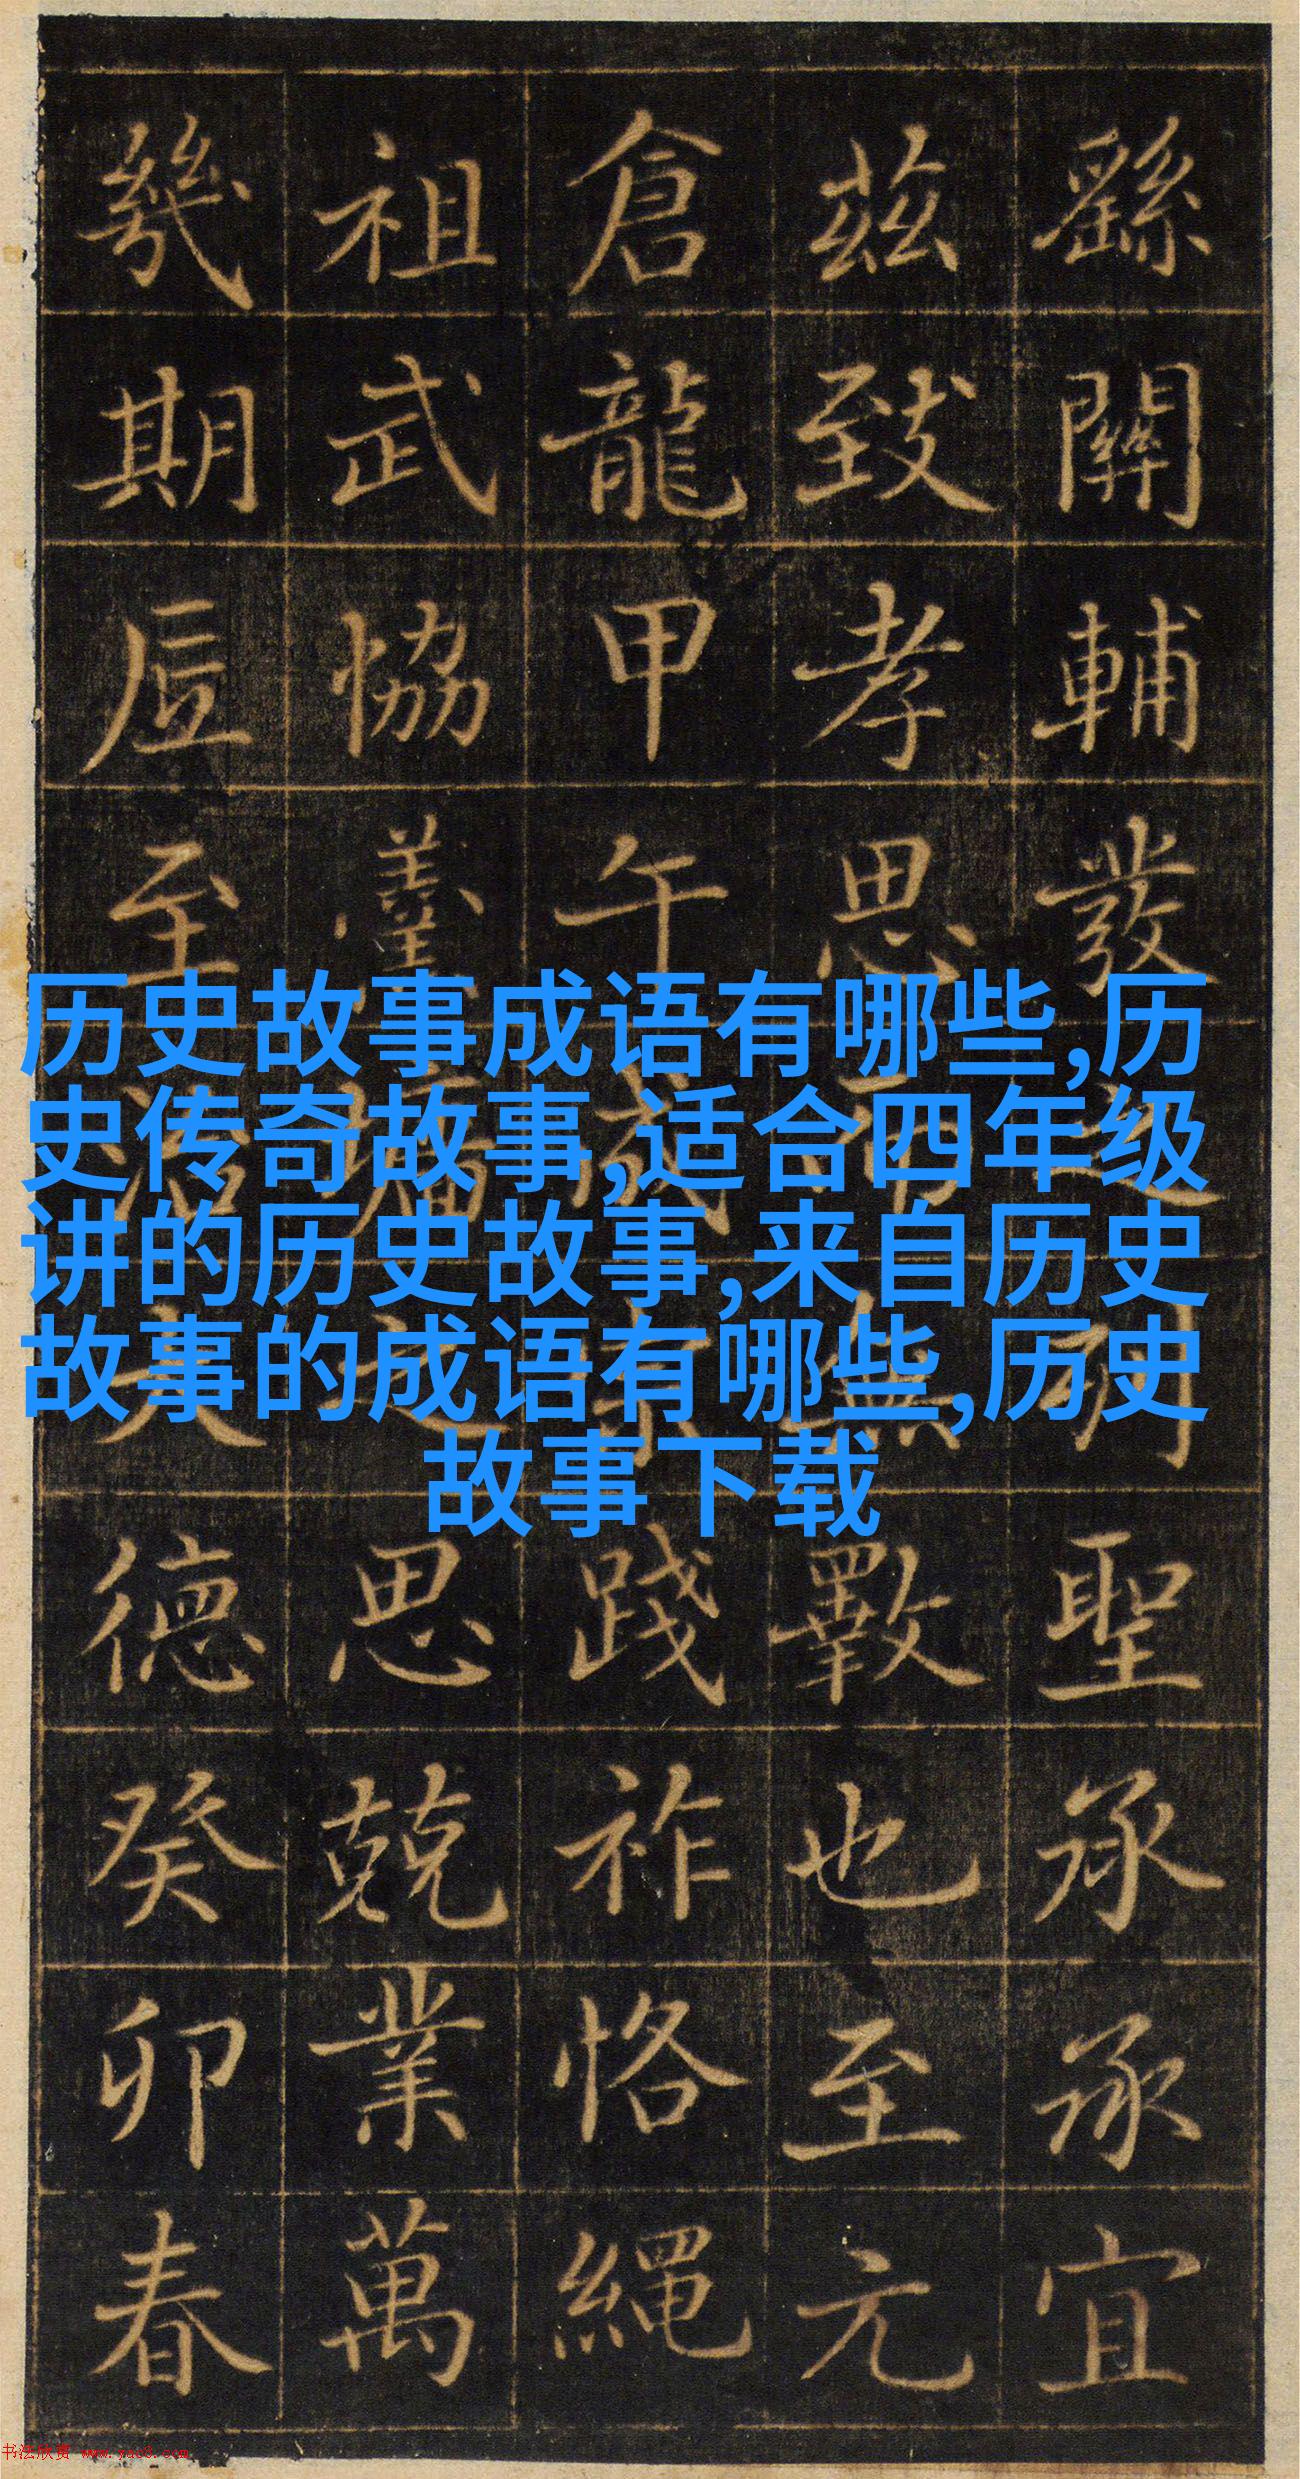 历史故事成语有哪些,历
史传奇故事,适合四年级
讲的历史故事,来自历史
故事的成语有哪些,历史
故事下载
繇關輔發之聖承承宜
茲致孝思而無斁也至元
倉龍甲午成宗踐祚恪繩
祖武協羹墻之思兢業萬
幾期底至治大德癸卯春
书法欣赏 www.yac8.com